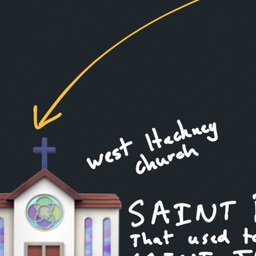 west Hackney
church
SAINT
That used to